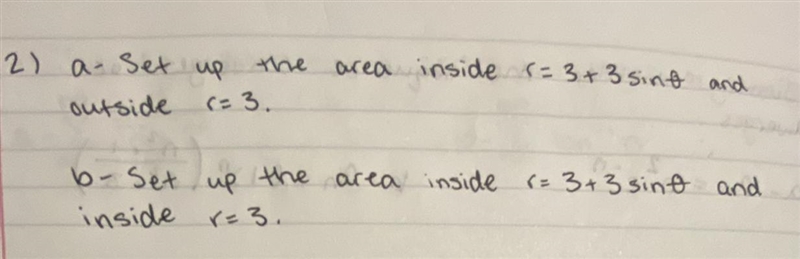 2) a- Set up the area inside r=3+3sinθ and
outside r=3.
b- Set up the area inside r=3+3sinθ and
inside r=3.